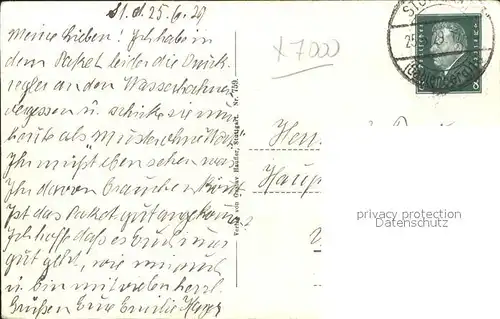 St. d. 25.6.29
Meine Lieben! Ich habe in
dem Paket leider die Druck-
regler an den Wasserhahnen
vergessen u. schicke sie nun
heute als Muster ohne Wert
Ihr müßt eben sehen was
Ihr davon brauchen könnt
Ist das Paket gut angekommen
Ich hoffe daß es Euch immer
gut geht, wie mir auch
u. bin mit vielen herzl.
Grüßen Eure Emilie
x 7000
Verlag von Gustav Hauser, Stuttgart. Nr. 759.
STU
25
DEUTSCHES REICH
6
Her
Haup
privacy protection
Datenschutz